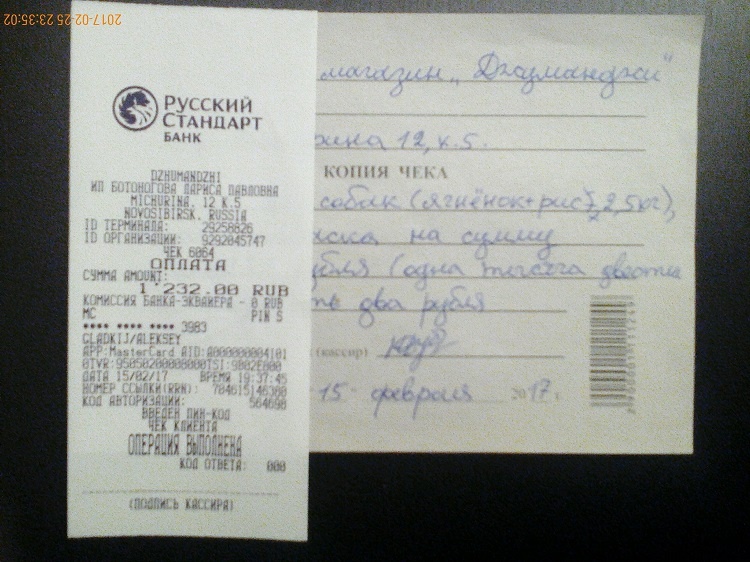 2017-02-25 23:35:02
РУССКИЙ
СТАНДАРТ
БАНК
DZHUMANDZHI
ИП БОТОНОГОВА ЛАРИСА ПАВЛОВНА
MICHURINA, 12 К.5
NOVOSIBIRSK, RUSSIA
ID ТЕРМИНАЛА: 29258826
ID ОРГАНИЗАЦИИ: 9292045747
ЧЕК 6064
ОПЛАТА
СУММА AMOUNT:
1'232.00 RUB
КОМИССИЯ БАНКА-ЭКВАЙЕРА - 0 RUB
MC PIN S
**** **** **** 3983
GLADKIJ/ALEKSEY
APP:MasterCard AID:A000000004101
ДАТА 15/02/17 ВРЕМЯ 19:37:45
НОМЕР ССЫЛКИ(RRN): 704615146380
КОД АВТОРИЗАЦИИ: 564698
ВВЕДЕН ПИН-КОД
ЧЕК КЛИЕНТА
ОПЕРАЦИЯ ВЫПОЛНЕНА
КОД ОТВЕТА: 000
(ПОДПИСЬ КАССИРА)
магазин „Джуманджи"
рина 12, к.5.
КОПИЯ ЧЕКА
собак (ягнёнок+рис) 2,5кг),
на сумму
рубля (одна тысяча двести
ть два рубля
(кассир)
15 февраля 2017 г.